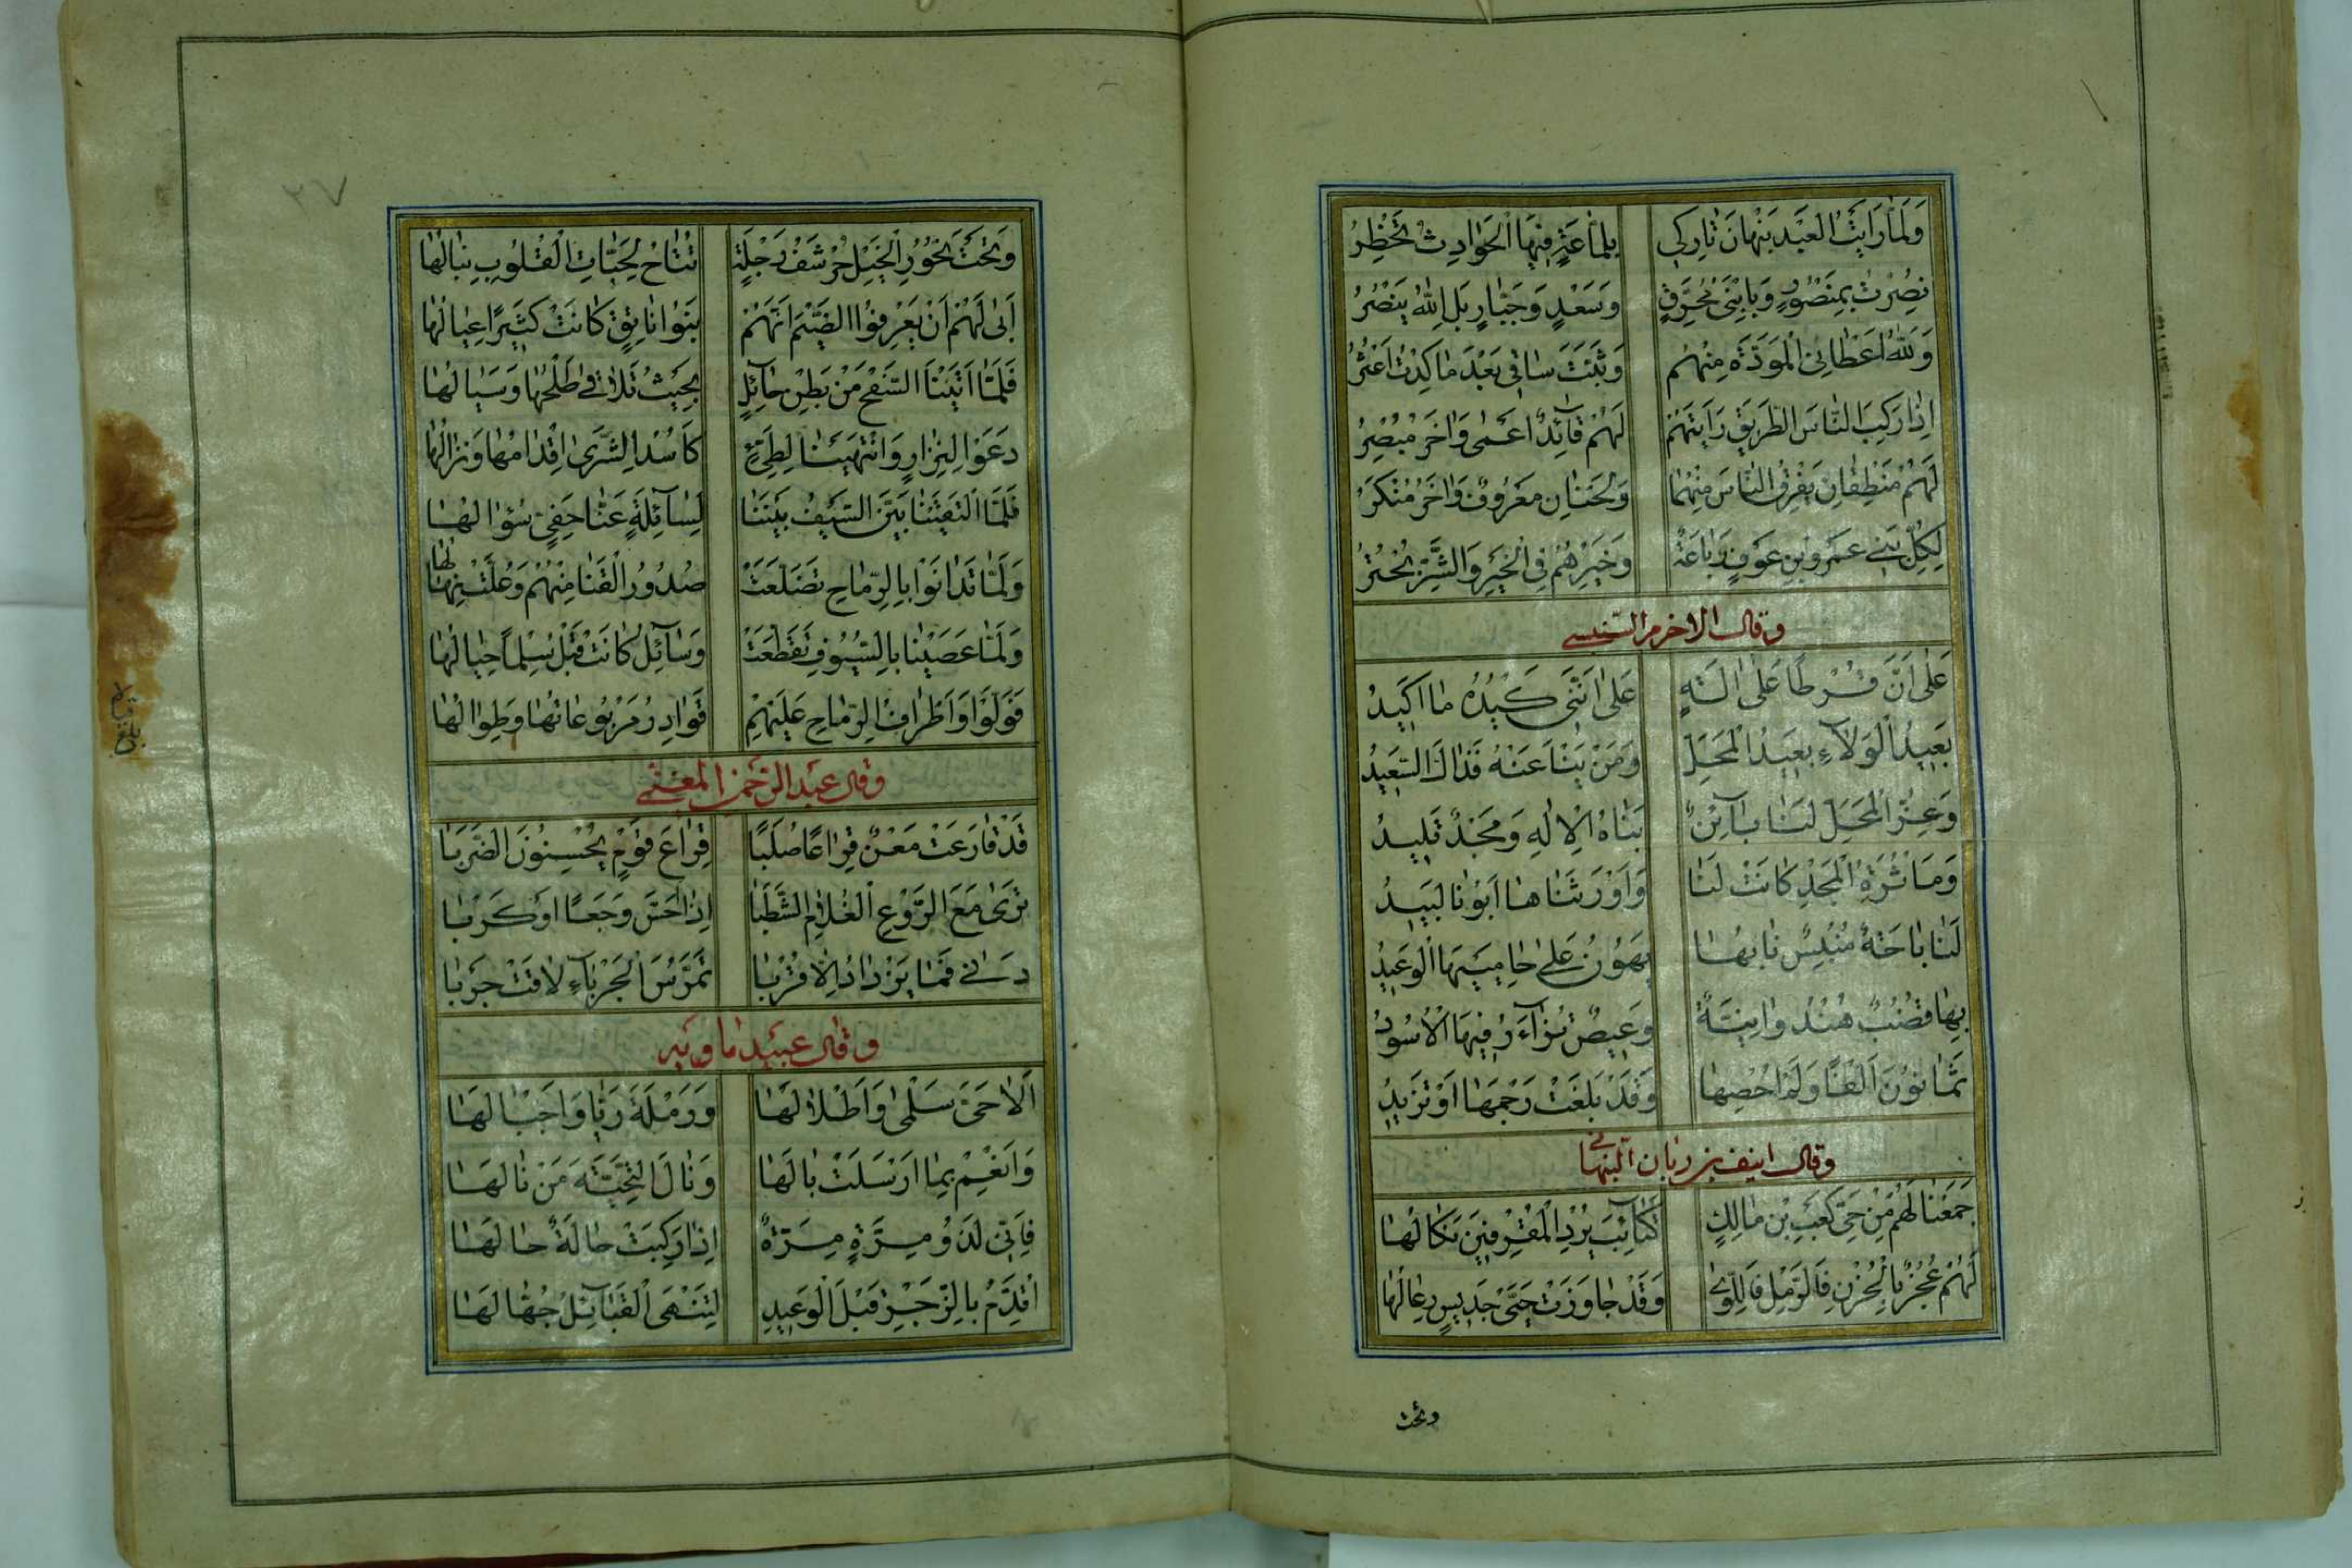 وَلَمَّا رَأَيْتُ الْعَبْدَ نَبْهَانَ تَارِكِي بِلَمَّاعَةٍ فِيهَا الْحَوَادِثُ تَخْطِرُ
نُصِرْتُ بِمَنْصُورٍ وَبِابْنَيْ مُعَرِّضٍ وَسَعْدٍ وَجَبَّارٍ بَلِ اللهُ يَنْصُرُ
وَلِلّٰهِ أَعْطَانِي الْمَوَدَّةَ مِنْهُمْ وَثَبَّتَ سَاقِي بَعْدَ مَا كِدْتُ أَعْثُرُ
إِذَا رَكِبَ النَّاسُ الطَّرِيقَ رَأَيْتَهُمْ لَهُمْ قَائِدٌ أَعْمَى وَآخَرُ مُبْصِرُ
لَهُمْ مَنْطِقَانِ يَفْرَقُ النَّاسُ مِنْهُمَا وَلَحْنَانِ مَعْرُوفٌ وَآخَرُ مُنْكَرُ
لِكُلِّ بَنِي عَمْرِو بْنِ عَوْفٍ رَبَاعَةٌ وَخَيْرُهُمْ فِي الْخَيْرِ وَالشَّرِّ بُحْتُرُ
وقال الاخرم السنبسي
عَلَى أَنَّ قُرْطًا عَلَى آلَةٍ عَلَى أَنَّنِي كَيْدُهُ مَا أَكِيدُ
بَعِيدُ الْوَلَاءِ بَعِيدُ الْمَحَلِّ وَمَنْ يَنْأَ عَنْهُ فَذَاكَ السَّعِيدُ
وَعِزُّ الْمَحَلِّ لَنَا بَائِنٌ بَنَاهُ الْإِلٰهُ وَمَجْدٌ تَلِيدُ
وَمَأْثُرَةُ الْمَجْدِ كَانَتْ لَنَا وَأَوْرَثَنَاهَا أَبُونَا لَبِيدُ
لَنَا بَاحَةٌ ضُبُسٌ نَابُهَا يَهُونُ عَلَى حَامِيَيْهَا الْوَعِيدُ
بِهَا قُضُبٌ هُنْدُوَانِيَّةٌ وَعِيصٌ تَزَاءَرُ فِيهَا الْأُسُودُ
ثَمَانُونَ أَلْفًا وَلَمْ أُحْصِهَا وَقَدْ بَلَغَتْ رَجْمَهَا أَوْ تَزِيدُ
وقال انيف بن زبان النبهاني
جَمَعْنَا لَهُمْ مِنْ حَيِّ كَعْبِ بْنِ مَالِكٍ كَتَائِبَ يُرْدِ الْمُقْرِفِينَ نَكَالُهَا
لَهُمْ عُجُزٌ بِالْحُزْنِ فَالرَّمْلِ فَاللِّوَى وَقَدْ جَاوَزَتْ حَيَّ جَدِيسٍ رِعَالُهَا
وتحت
٢٧
وَتَحْتَ نُحُورِ الْخَيْلِ حَرْشَفُ رَجْلَةٍ تُتَاحُ لِحَبَّاتِ الْقُلُوبِ نِبَالُهَا
أَبَى لَهُمْ أَنْ يَعْرِفُوا الضَّيْمَ أَنَّهُمْ بَنُو نَاتِقٍ كَانَتْ كَثِيرًا عِيَالُهَا
فَلَمَّا أَتَيْنَا السَّفْحَ مِنْ بَطْنِ حَائِلٍ بِحَيْثُ تَلَاقَى طَلْحُهَا وَسَيَالُهَا
دَعَوْا لِنِزَارٍ وَانْتَمَيْنَا لِطَيِّئٍ كَأُسْدِ الشَّرَى إِقْدَامُهَا وَنِزَالُهَا
فَلَمَّا الْتَقَيْنَا بَيَّنَ السَّيْفُ بَيْنَنَا لِسَائِلَةٍ عَنَّا حَفِيٍّ سُؤَالُهَا
وَلَمَّا تَدَانَوْا بِالرِّمَاحِ تَضَلَّعَتْ صُدُورُ الْقَنَا مِنْهُمْ وَعُلَّتْ نِهَالُهَا
وَلَمَّا عَصَيْنَا بِالسُّيُوفِ تَقَطَّعَتْ وَسَائِلُ كَانَتْ قَبْلُ سِلْمًا حِبَالُهَا
فَوَلَّوْا وَأَطْرَافُ الرِّمَاحِ عَلَيْهِمِ قَوَادِرُ مَرْبُوعَاتُهَا وَطِوَالُهَا
وقال عبد الرحمن المعني
قَدْ قَارَعَتْ مَعْنٌ قِرَاعًا صُلْبًا قِرَاعَ قَوْمٍ يُحْسِنُونَ الضَّرْبَا
تَرَى مَعَ الرَّوْعِ الْغُلَامَ الشَّطْبَا إِذَا أَحَسَّ وَجَعًا أَوْ كَرْبَا
دَنَا فَمَا يَزْدَادُ إِلَّا قُرْبَا تَمَرُّسَ الْجَرْبَاءِ لَاقَتْ جَرْبَا
وقال عبيد ماوية
أَلَا حَيِّ سَلْمَى وَأَطْلَالَهَا وَرَمْلَةَ رَيَّا وَأَجْبَالَهَا
وَانْعِمْ بِمَا أَرْسَلَتْ بَالَهَا وَنَالَ التَّحِيَّةَ مَنْ نَالَهَا
فَإِنِّي لَذُو مِرَّةٍ مِرَّةٌ إِذَا رَكِبَتْ حَالَةٌ حَالَهَا
أُقَدِّمُ بِالزَّجْرِ قَبْلَ الْوَعِيدِ لِتَنْهَى الْقَبَائِلُ جُهَّالَهَا